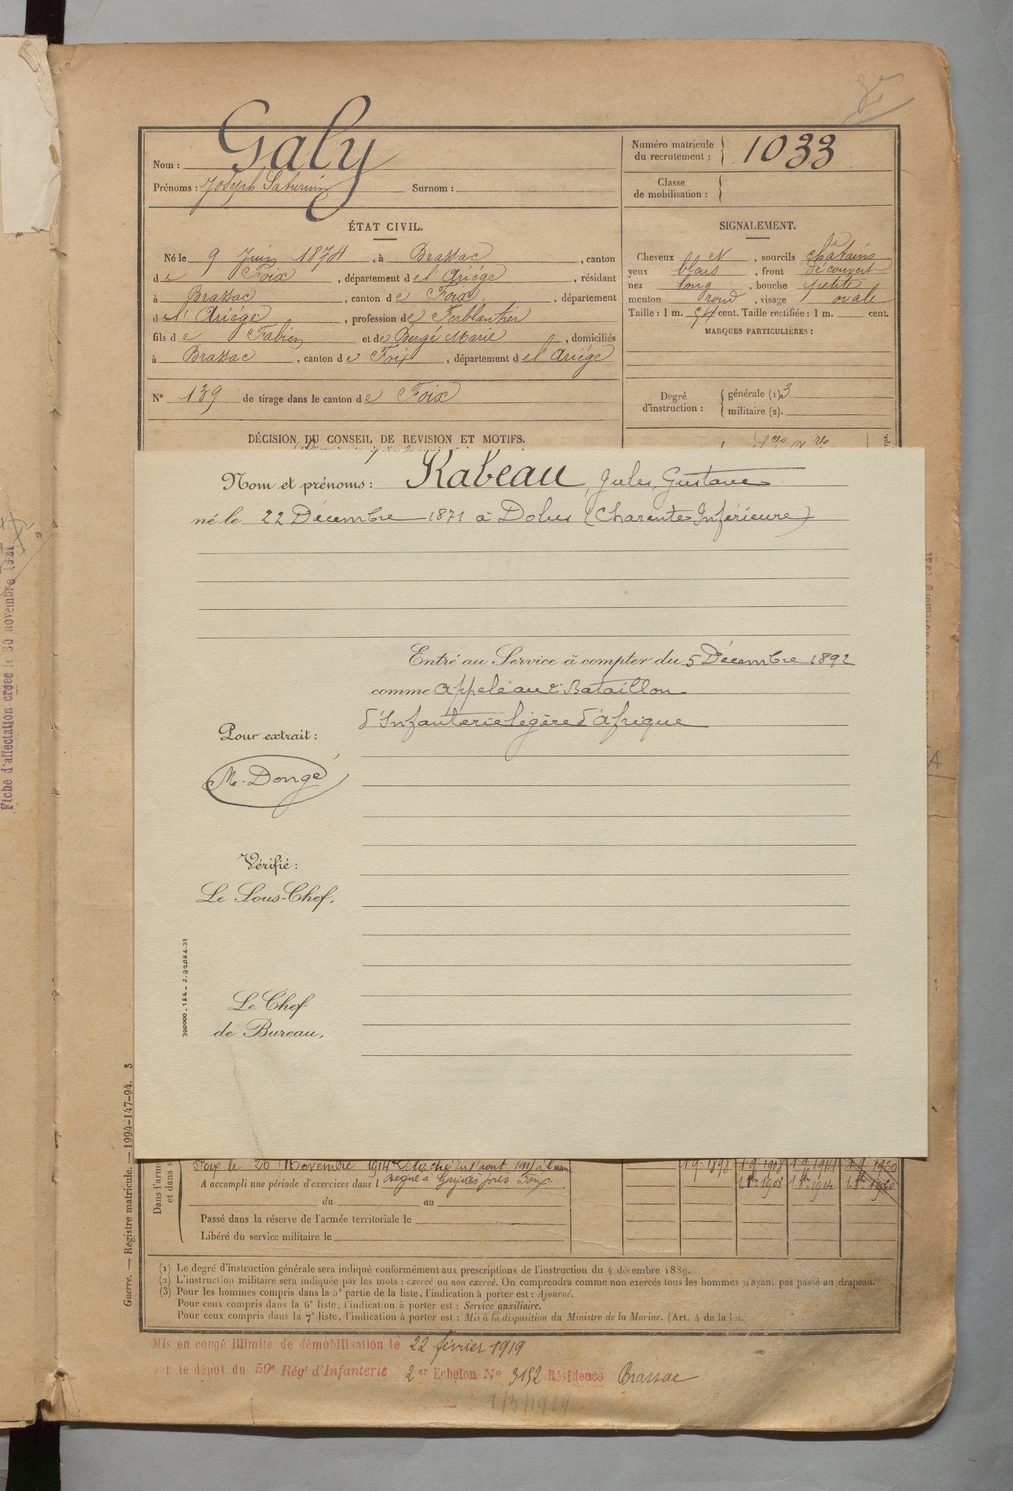 Nom : Galy
Prénoms : Joseph Saturnin Surnom :
Numéro matricule du recrutement : 1033
Classe de mobilisation :
ÉTAT CIVIL.
Né le 9 Juin 1874, à Brassac, canton
de Foix, département de l'Ariège, résidant
à Brassac, canton de Foix, département
de l'Ariège, profession de Ferblantier
fils de Fabien et de Bergé Marie, domiciliés
à Brassac, canton de Foix, département de l'Ariège
N° 139 de tirage dans le canton de Foix
SIGNALEMENT.
Cheveux et, sourcils chatains
yeux bleus, front découvert
nez long, bouche petite
menton rond, visage ovale
Taille : 1 m. cent. Taille rectifiée : 1 m. cent.
MARQUES PARTICULIÈRES :
Degré d'instruction : générale (1) 3
militaire (2).
DÉCISION DU CONSEIL DE REVISION ET MOTIFS.
Nom et prénoms : Rabeau, Jules, Gustave
né le 22 Décembre 1871 à Dolus (Charente Inférieure)
Entré au Service à compter du 5 Décembre 1892
comme appelé au Bataillon
d'Infanterie légère d'Afrique
Pour extrait :
M. Dongé
Vérifié :
Le Sous-Chef,
Le Chef
de Bureau,
Fiche d'affectation créée le 30 novembre
Guerre. — Registre matricule. — 1994-147-94. 3
Foix le 20 Novembre 1914
A accompli une période d'exercices dans l
du au
Passé dans la réserve de l'armée territoriale le
Libéré du service militaire le
(1) Le degré d'instruction générale sera indiqué conformément aux prescriptions de l'instruction du 4 décembre 1889.
(2) L'instruction militaire sera indiquée par les mots : exercé ou non exercé. On comprendra comme non exercés tous les hommes n'ayant pas passé au drapeau.
(3) Pour les hommes compris dans la 5e partie de la liste, l'indication à porter est : Ajourné.
Pour ceux compris dans la 6e liste, l'indication à porter est : Service auxiliaire.
Pour ceux compris dans la 7e liste, l'indication à porter est : Mis à la disposition du Ministre de la Marine. (Art. 4 de la loi.)
Mis en congé illimité de démobilisation le 22 février 1919
par le dépôt du 59e Régt d'Infanterie 2er Echelon No 3152 Résidence Brassac
1/3/1919